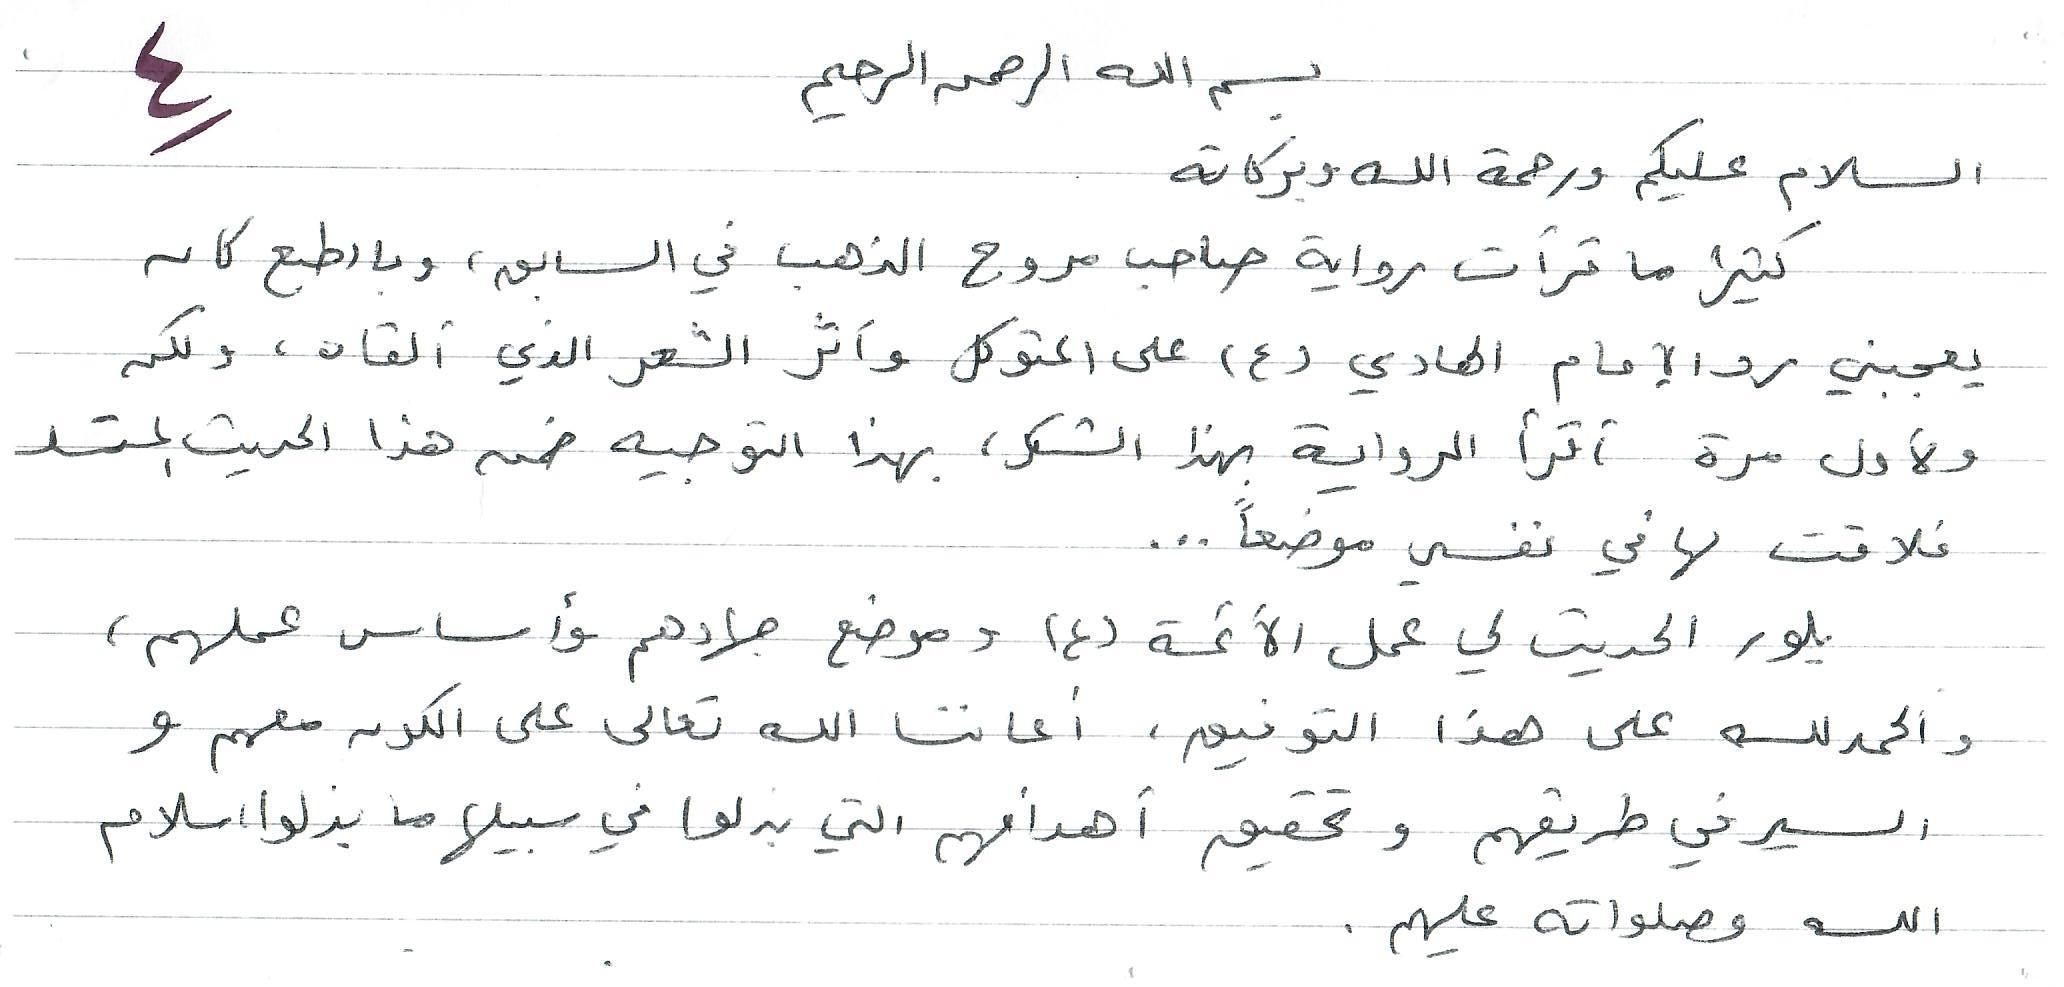 ٤
بسم الله الرحمن الرحيم
السلام عليكم ورحمة الله وبركاته
كثيرًا ما قرأت رواية صاحب مروج الذهب في السابق، وبالطبع كان
يعجبني رد الإمام الهادي (ع) على المتوكل وأثر الشعر الذي ألقاه، ولكن
ولأول مرة أقرأ الرواية بهذا الشكل، بهذا التوجيه ضمن هذا الحديث الممتد
فلاقت لها في نفسي موضعاً ...
بلور الحديث لي عمل الأئمة (ع) وموضع جهادهم وأساس عملهم،
والحمد لله على هذا التوفيق، أعاننا الله تعالى على الكون معهم و
السير في طريقهم وتحقيق أهدافهم التي بذلوا في سبيلها ما بذلوا، سلام
الله وصلواته عليهم.